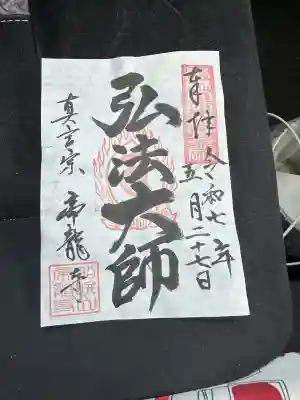 奉拝 令和七年
五月二十七日
弘法大師
真言宗 帝龍寺